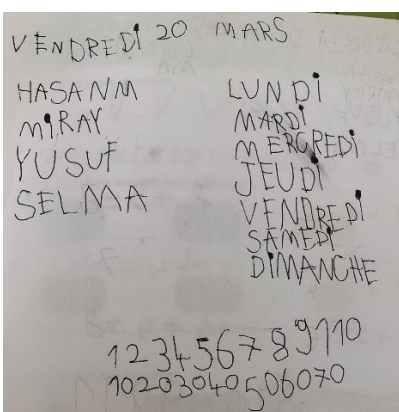 VENDREDI 20 MARS
HASANM
MIRAY
YUSUF
SELMA
LUNDI
MARDI
MERCREDI
JEUDI
VENDREDI
SAMEDI
DIMANCHE
1 2 3 4 5 6 7 8 9 1 10
10 20 30 40 50 60 70